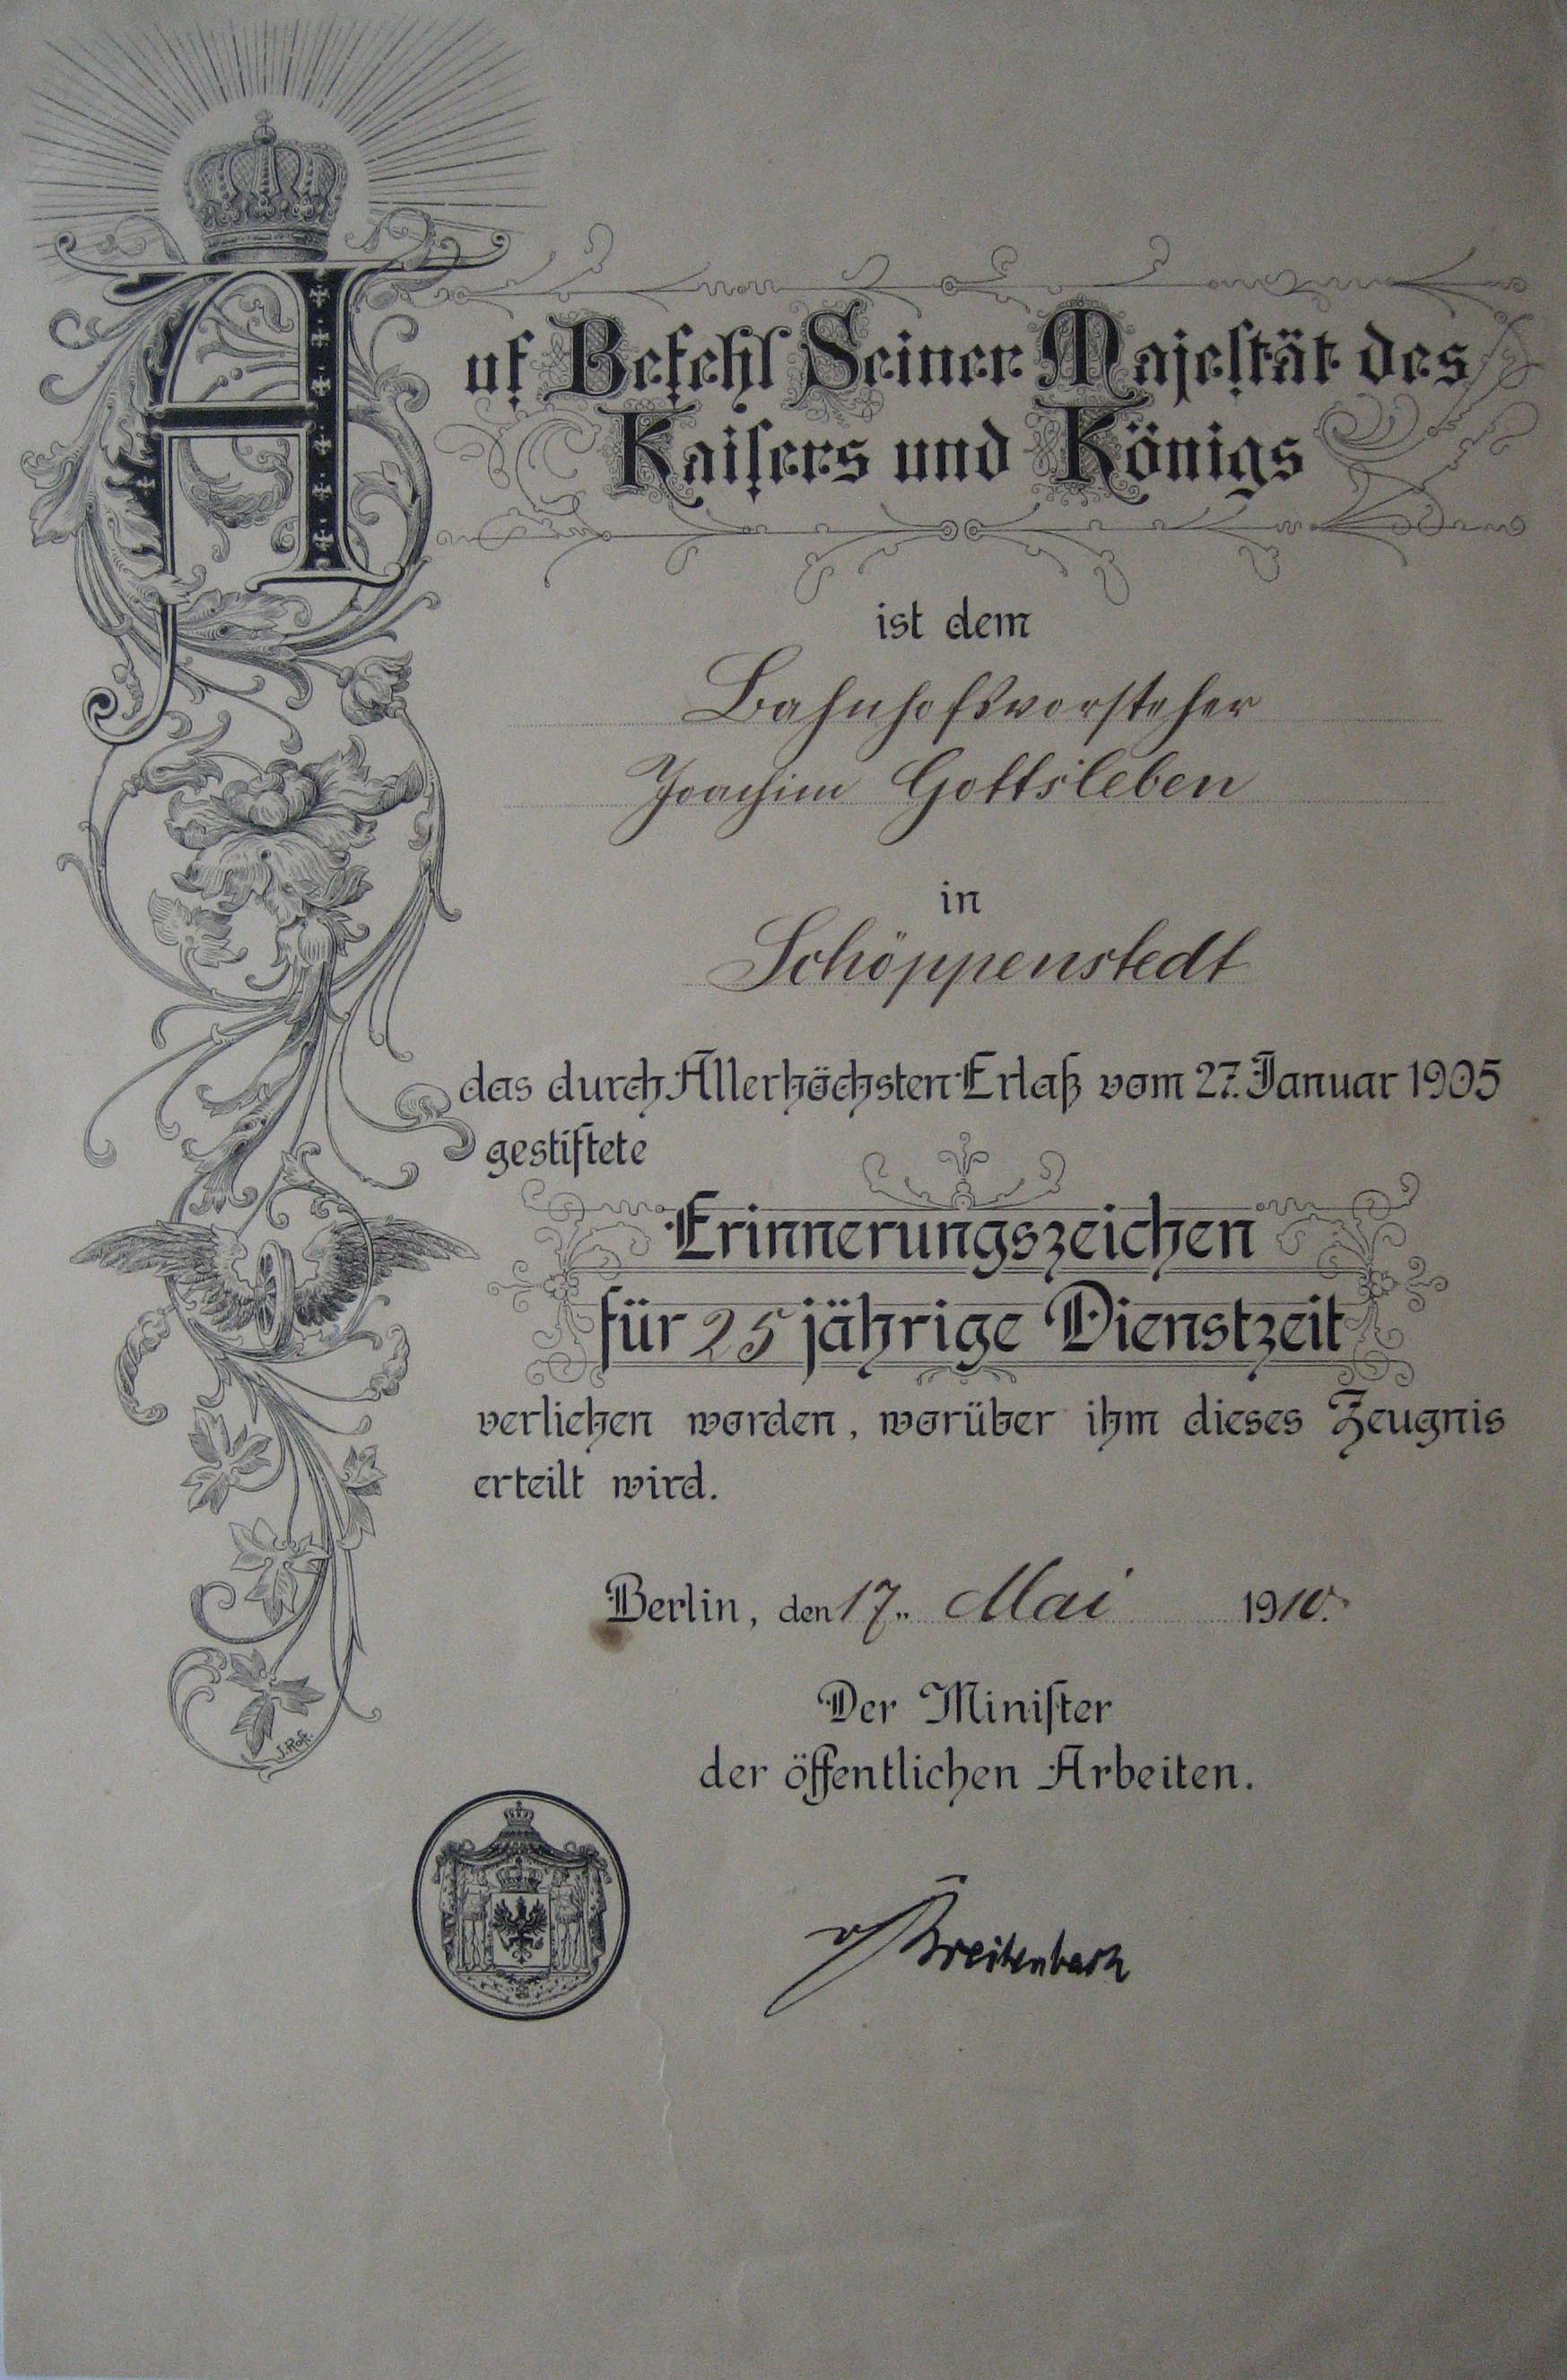 Auf Befehl Seiner Majestät des
Kaisers und Königs
ist dem
Bahnhofsvorsteher
Joachim Gottsleben
in
Schöppenstedt
das durch Allerhöchsten Erlaß vom 27. Januar 1905
gestiftete
Erinnerungszeichen
für 25 jährige Dienstzeit
verliehen worden, worüber ihm dieses Zeugnis
erteilt wird.
Berlin, den 17. Mai 1910.
Der Minister
der öffentlichen Arbeiten.
v Breitenbach